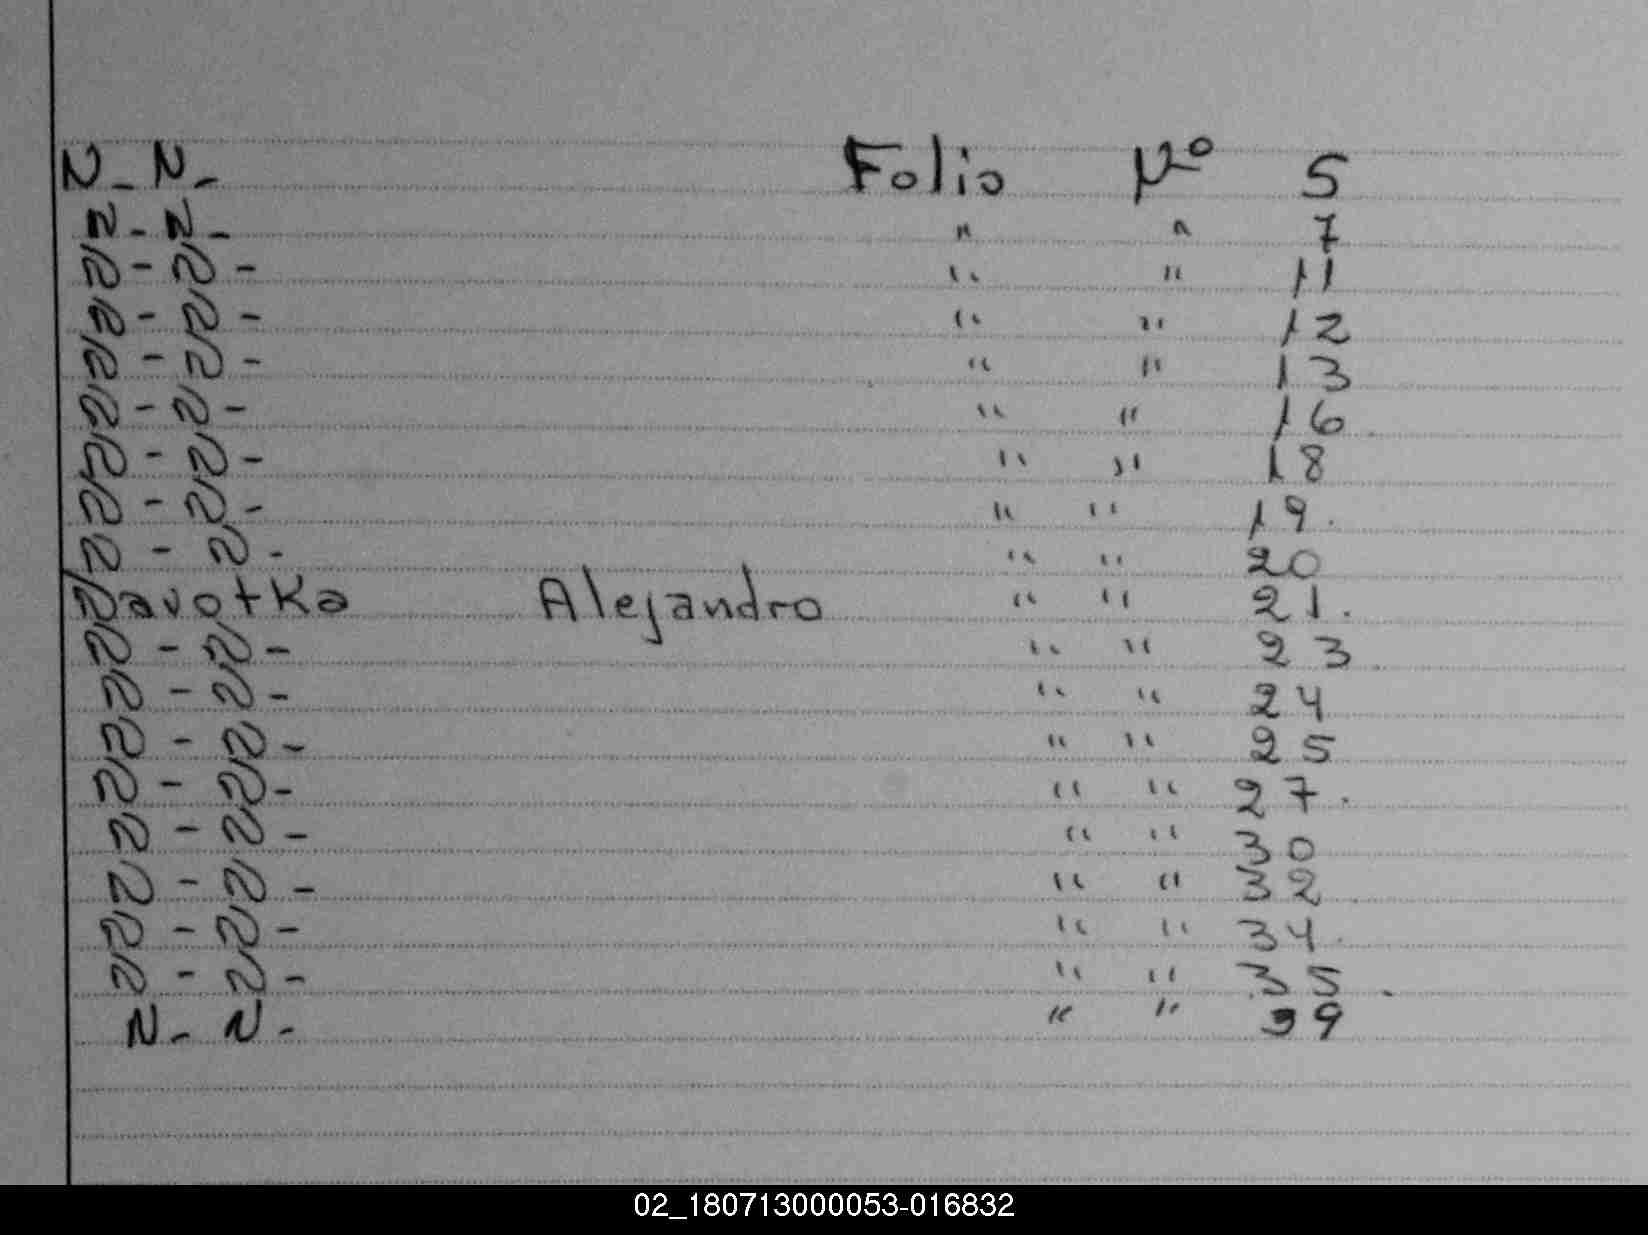 N. N. Folio Nº 5
N. N. " " 7
N - N - " " 11
N - N - " " 12
N - N - " " 13
N - N - " " 16
N - N - " " 18
N - N - " " 19.
N - N - " " 20
Navotka Alejandro " " 21.
N - N - " " 23
N - N - " " 24
N - N - " " 25
N - N - " " 27.
N - N - " " 30
N - N - " " 32
N - N - " " 34.
N - N - " " 35.
N. N. " " 39
02_180713000053-016832